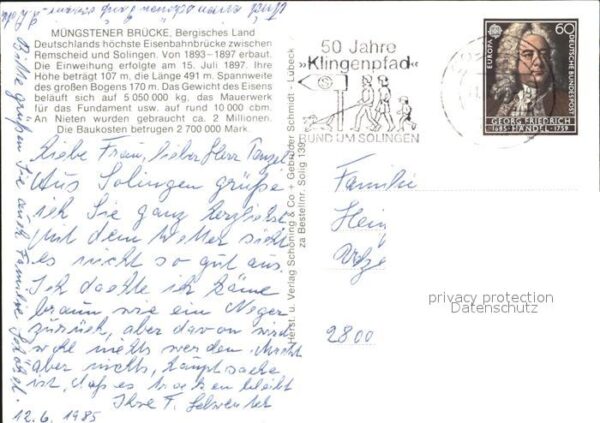 MÜNGSTENER BRÜCKE, Bergisches Land
Deutschlands höchste Eisenbahnbrücke zwischen
Remscheid und Solingen. Von 1893-1897 erbaut.
Die Einweihung erfolgte am 15. Juli 1897. Ihre
Höhe beträgt 107 m, die Länge 491 m. Spannweite
des großen Bogens 170 m. Das Gewicht des Eisens
beläuft sich auf 5 050 000 kg, das Mauerwerk
für das Fundament usw. auf rund 10 000 cbm.
An Nieten wurden gebraucht ca. 2 Millionen.
Die Baukosten betrugen 2 700 000 Mark.
Liebe Frau, lieber Herr
Aus Solingen grüße
ich Sie ganz herzlichst
Mit dem Wetter sieht
es nicht so gut aus
Ich dachte ich käme
braun wie ein Neger
zurück, aber davon wird
wohl nichts werden. Macht
aber nichts, Hauptsache
ist, daß es trocken bleibt
Ihre F.
12.6.1985
Bitte grüßen Sie auch Familie
Herst. u. Verlag Schöning & Co + Gebrüder Schmidt - Lübeck
za Bestellnr. Solig 139
50 Jahre
»Klingenpfad«
RUND UM SOLINGEN
EUROPA
60
DEUTSCHE BUNDESPOST
GEORG FRIEDRICH
1685-HÄNDEL-1759
Familie
Hein
2800
privacy protection
Datenschutz